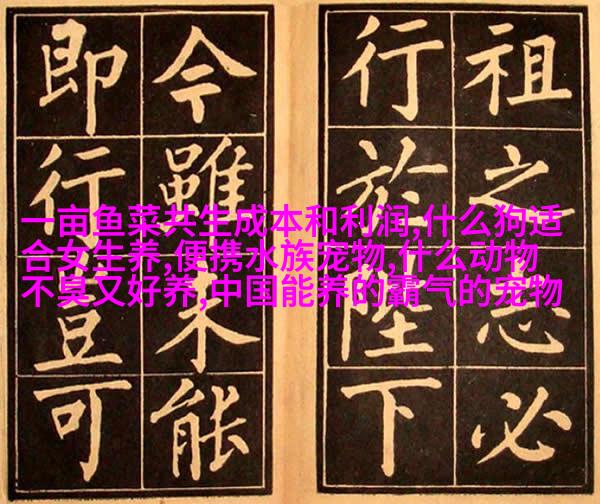 祖之志必
行於陛下
今雖未能
即行豈可
一亩鱼菜共生成本和利润,什么狗适
合女生养,便携水族宠物,什么动物
不臭又好养,中国能养的霸气的宠物